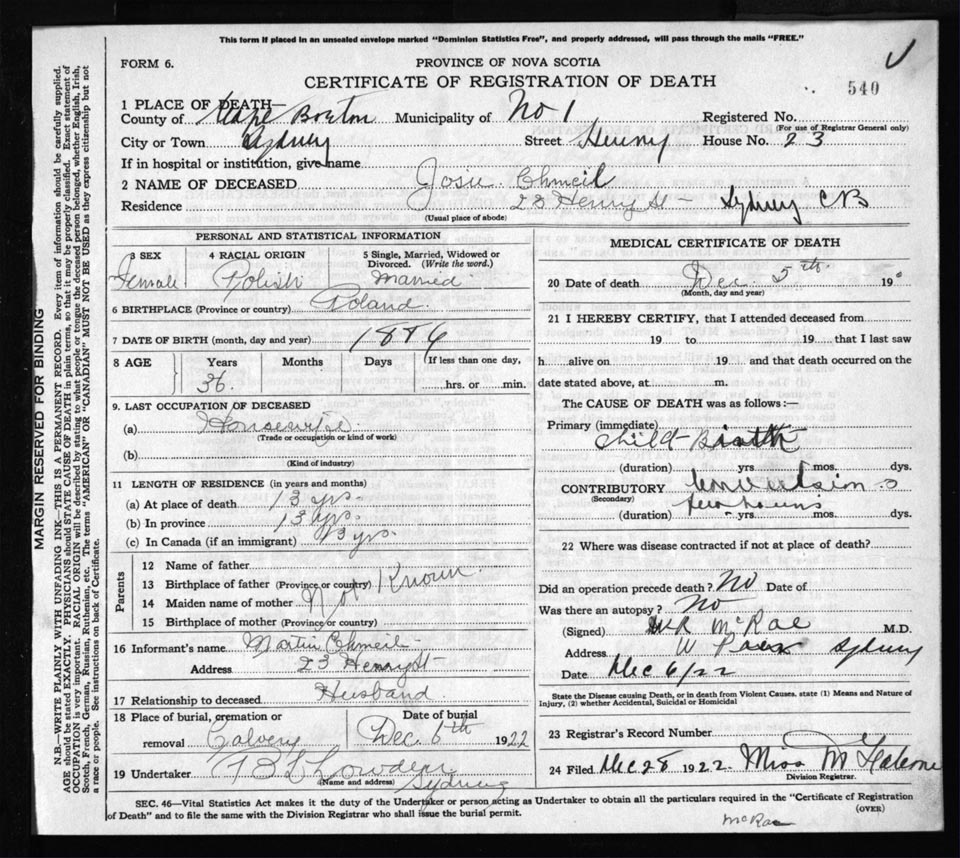 This form if placed in an unsealed envelope marked "Dominion Statistics Free", and properly addressed, will pass through the mails "FREE."
FORM 6.
PROVINCE OF NOVA SCOTIA
CERTIFICATE OF REGISTRATION OF DEATH
540
1 PLACE OF DEATH—
County of Cape Breton Municipality of No 1 Registered No.
(For use of Registrar General only)
City or Town Sydney Street Henry House No. 23
If in hospital or institution, give name
2 NAME OF DECEASED Josie Chmeil
Residence 23 Henry St - Sydney CB
(Usual place of abode)
PERSONAL AND STATISTICAL INFORMATION
3 SEX 4 RACIAL ORIGIN 5 Single, Married, Widowed or Divorced. (Write the word.)
Female Polish Married
6 BIRTHPLACE (Province or country) Poland
7 DATE OF BIRTH (month, day and year) 1886
8 AGE Years Months Days If less than one day,
36 hrs. or min.
9. LAST OCCUPATION OF DECEASED
(a) Housewife
(Trade or occupation or kind of work)
(b)
(Kind of industry)
11 LENGTH OF RESIDENCE (in years and months)
(a) At place of death 13 yrs.
(b) In province 13 yrs.
(c) In Canada (if an immigrant) 13 yrs
Parents
12 Name of father
13 Birthplace of father (Province or country)
14 Maiden name of mother
15 Birthplace of mother (Province or country)
Not Known
16 Informant's name Martin Chmeil
Address 23 Henry St
17 Relationship to deceased Husband
18 Place of burial, cremation or removal Calvery
Date of burial Dec. 6th 1922
19 Undertaker
(Name and address) Sydney
MEDICAL CERTIFICATE OF DEATH
20 Date of death Dec 5th 19
(Month, day and year)
21 I HEREBY CERTIFY, that I attended deceased from
19 to 19 that I last saw
h alive on 19 and that death occurred on the
date stated above, at m.
The CAUSE OF DEATH was as follows:—
Primary (immediate)
Child Birth
(duration) yrs mos. dys.
CONTRIBUTORY
(Secondary)
Convulsions
(duration) few hours yrs. mos. dys.
22 Where was disease contracted if not at place of death?
Did an operation precede death? No Date of
Was there an autopsy? No
(Signed) McRae M.D.
Address Sydney
Date Dec 6/22
State the Disease causing Death, or in death from Violent Causes, state (1) Means and Nature of Injury, (2) whether Accidental, Suicidal or Homicidal
23 Registrar's Record Number
24 Filed Dec 28 1922. Miss M
Division Registrar.
SEC. 46—Vital Statistics Act makes it the duty of the Undertaker or person acting as Undertaker to obtain all the particulars required in the "Certificate of Registration
of Death" and to file the same with the Division Registrar who shall issue the burial permit. (OVER)
McRae
MARGIN RESERVED FOR BINDING
N.B.—WRITE PLAINLY WITH UNFADING INK—THIS IS A PERMANENT RECORD. Every item of information should be carefully supplied.
AGE should be stated EXACTLY. PHYSICIANS should STATE CAUSE OF DEATH in plain terms, so that it may be properly classified. Exact statement of
OCCUPATION is very important. RACIAL ORIGIN will be described by stating to what people or tongue the deceased person belonged, whether English, Irish,
Scotch, French, German, Russian, Ruthenian, etc. The terms "AMERICAN" or "CANADIAN" MUST NOT BE USED as they express citizenship but not
a race or people. See instructions on back of Certificate.